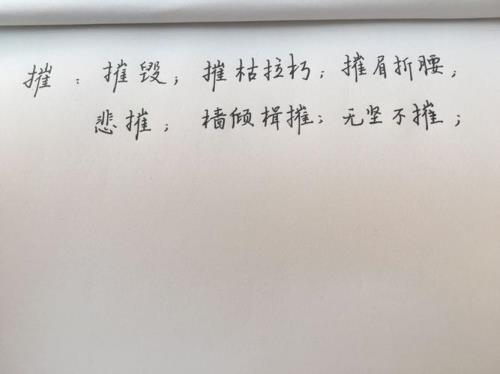 摧：摧毁；摧枯拉朽；摧眉折腰；
悲摧；樯倾楫摧；无坚不摧；